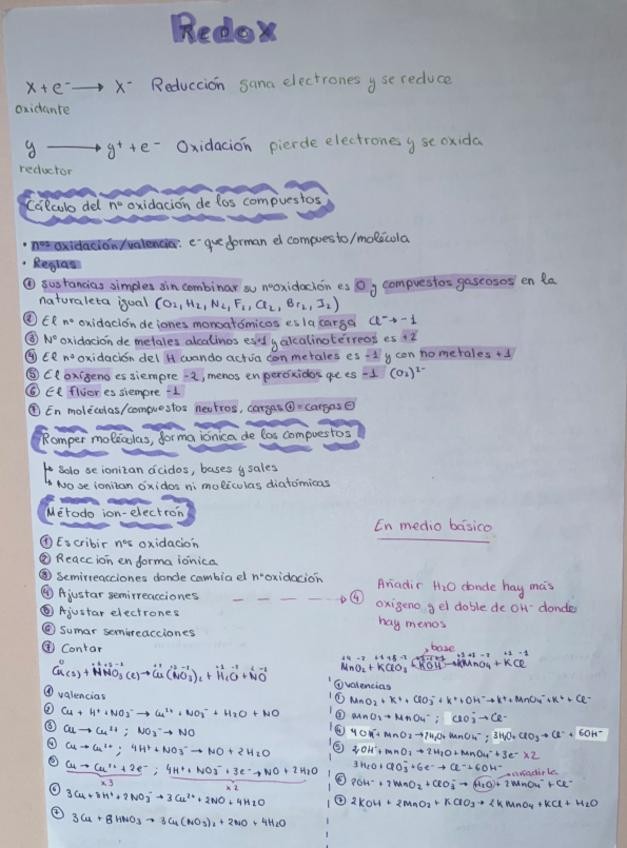 Redox
X + e⁻ → X⁻ Reducción gana electrones y se reduce
oxidante
y → y⁺ + e⁻ Oxidación pierde electrones y se oxida
reductor
Cálculo del nº oxidación de los compuestos
• nos oxidación/valencia: e⁻ que forman el compuesto/molécula
• Reglas
① Sustancias simples sin combinar su nº oxidación es 0 y compuestos gaseosos en la
naturaleta igual (O₂, H₂, N₂, F₂, Cl₂, Br₂, I₂)
② El nº oxidación de iones monoatómicos es la carga Cl⁻ → -1
③ Nº oxidación de metales alcalinos es +1 y alcalinotérreos es +2
④ El nº oxidación del H cuando actúa con metales es -1 y con no metales +1
⑤ El oxígeno es siempre -2, menos en peróxidos que es -1 (O₂)²⁻
⑥ El flúor es siempre -1
⑦ En moléculas/compuestos neutros, cargas ⊕ = cargas ⊖
Romper moléculas, forma iónica de los compuestos
↳ Solo se ionizan ácidos, bases y sales
↳ No se ionizan óxidos ni moléculas diatómicas
Método ion-electrón
① Escribir nos oxidación
② Reacción en forma iónica
③ Semirreacciones donde cambia el nº oxidación
④ Ajustar semirreacciones
⑤ Ajustar electrones
⑥ Sumar semirreacciones
⑦ Contar
Cu(s) + HNO₃ (c) → Cu(NO₃)₂ + H₂O + NO
① valencias
② Cu + H⁺ + NO₃⁻ → Cu²⁺ + NO₃⁻ + H₂O + NO
③ Cu → Cu²⁺ ; NO₃⁻ → NO
④ Cu → Cu²⁺ ; 4H⁺ + NO₃⁻ → NO + 2H₂O
⑤ Cu → Cu²⁺ + 2e⁻ ; 4H⁺ + NO₃⁻ + 3e⁻ → NO + 2H₂O
x3 x2
⑥ 3Cu + 8H⁺ + 2NO₃⁻ → 3Cu²⁺ + 2NO + 4H₂O
⑦ 3Cu + 8HNO₃ → 3Cu(NO₃)₂ + 2NO + 4H₂O
En medio básico
④ Añadir H₂O donde hay más
oxígeno y el doble de OH⁻ donde
hay menos
base
MnO₂ + KClO₃ + KOH → KMnO₄ + KCl
① valencias
② MnO₂ + K⁺ + ClO₃⁻ + K⁺ + OH⁻ → K⁺ + MnO₄⁻ + K⁺ + Cl⁻
③ MnO₂ → MnO₄⁻ ; ClO₃⁻ → Cl⁻
④ 4OH⁻ + MnO₂ → 2H₂O + MnO₄⁻ ; 3H₂O + ClO₃⁻ → Cl⁻ + 6OH⁻
⑤ 4OH⁻ + MnO₂ → 2H₂O + MnO₄⁻ + 3e⁻ x2
3H₂O + ClO₃⁻ + 6e⁻ → Cl⁻ + 6OH⁻
añadirla
⑥ 2OH⁻ + 2MnO₂ + ClO₃⁻ → H₂O + 2MnO₄⁻ + Cl⁻
⑦ 2KOH + 2MnO₂ + KClO₃ → 2KMnO₄ + KCl + H₂O